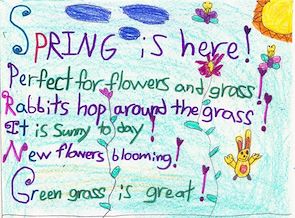 SPRING is here!
Perfect for flowers and grass!
Rabbits hop around the grass!
It is Sunny to day!
New flowers blooming!
Green grass is great!